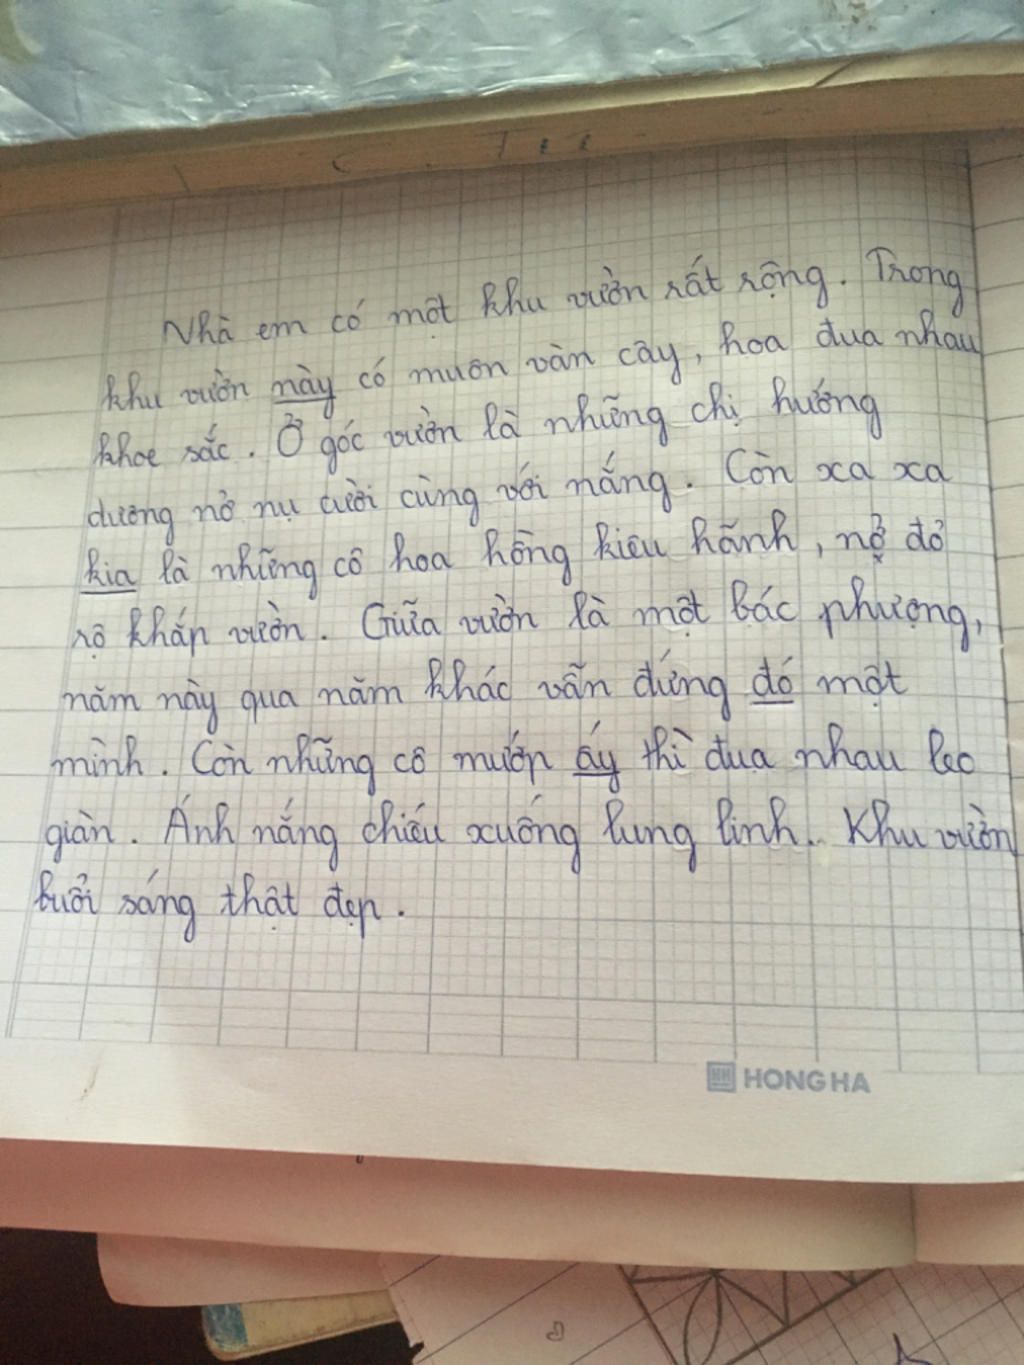 Nhà em có một khu vườn rất rộng. Trong
khu vườn này có muôn vàn cây, hoa đua nhau
khoe sắc. Ở góc vườn là những chị hướng
dương nở nụ cười cùng với nắng. Còn xa xa
kia là những cô hoa hồng kiêu hãnh, nở đỏ
rộ khắp vườn. Giữa vườn là một bác phượng,
năm này qua năm khác vẫn đứng đó một
mình. Còn những cô mướp ấy thì đua nhau leo
giàn. Ánh nắng chiếu xuống lung linh. Khu vườn
buổi sáng thật đẹp.
HONG HA